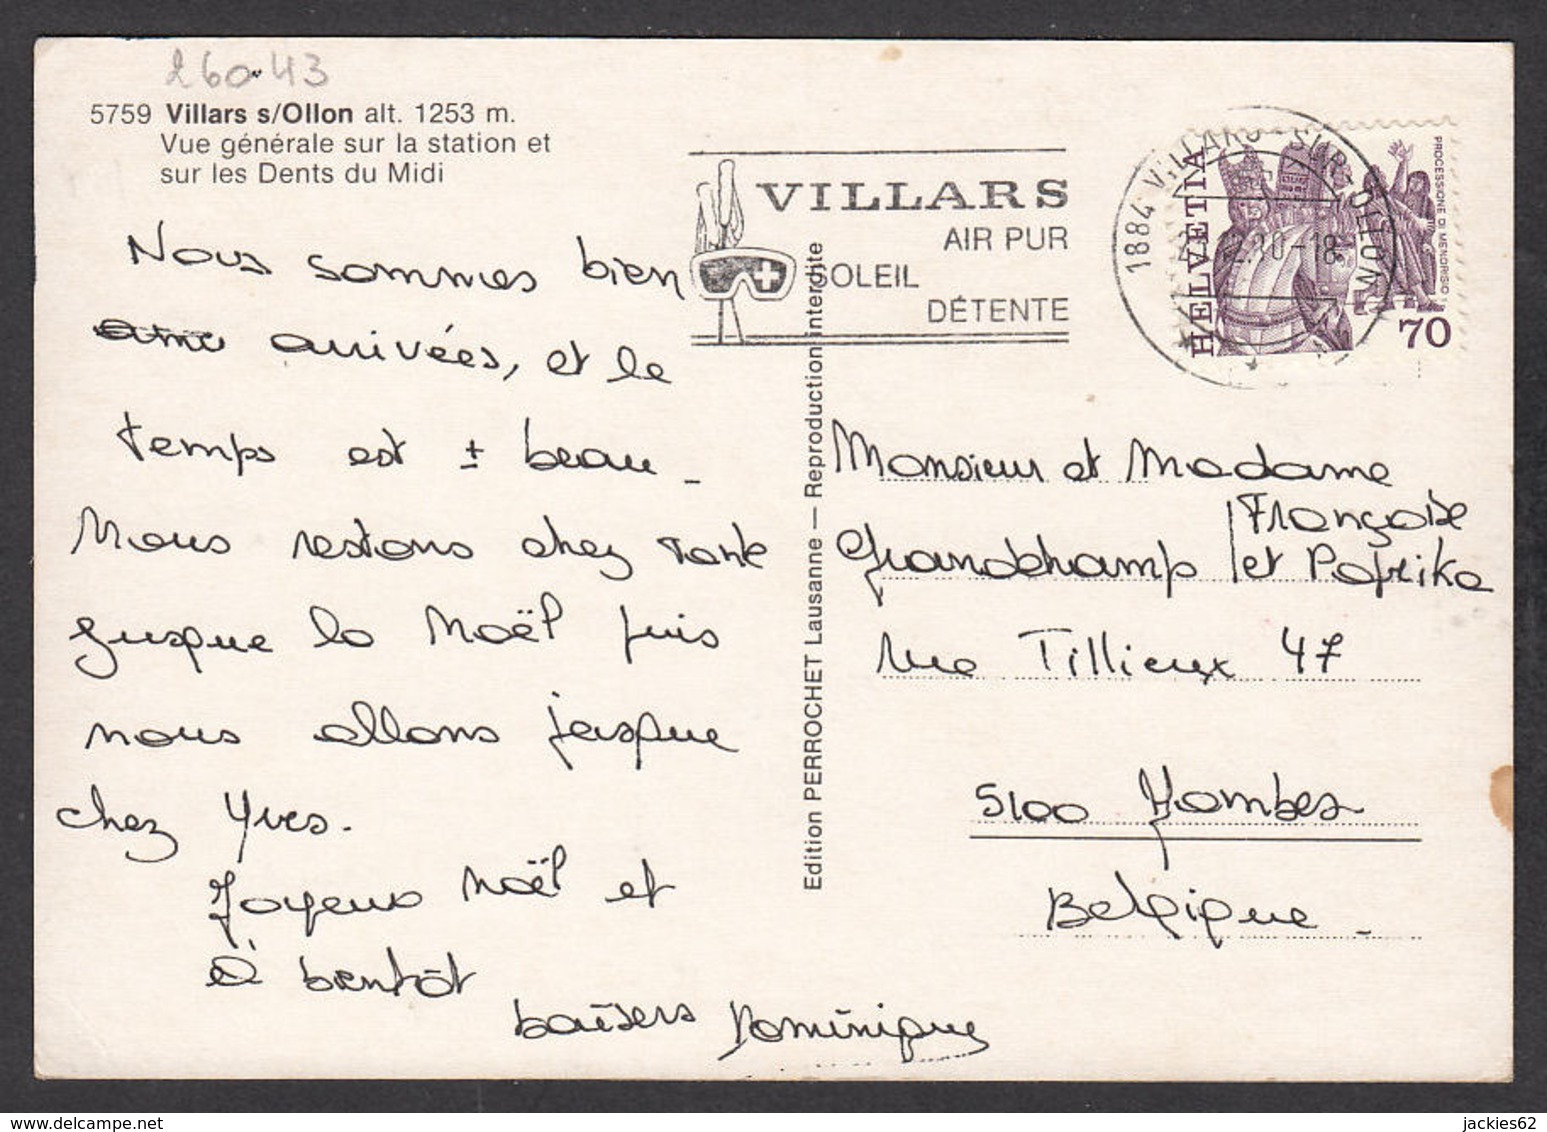 260-43
5759 Villars s/Ollon alt. 1253 m.
Vue générale sur la station et
sur les Dents du Midi
VILLARS
AIR PUR
SOLEIL
DÉTENTE
1884 VILLARS-SUR-OLLON
12.80-18
HELVETIA
PROCESSIONE DI MENDRISIO
70
Nous sommes bien
arrivées, et le
temps est ± beau_
Nous restons chez
jusque la Noël puis
nous allons jusque
chez Yves.
Joyeux Noël et
à bientôt
baisers Dominique
Edition PERROCHET Lausanne — Reproduction interdite
Monsieur et Madame
Grandchamp
Françoise
et Paprika
rue Tillieux 47
5100 Jambes
Belgique_
jackies62